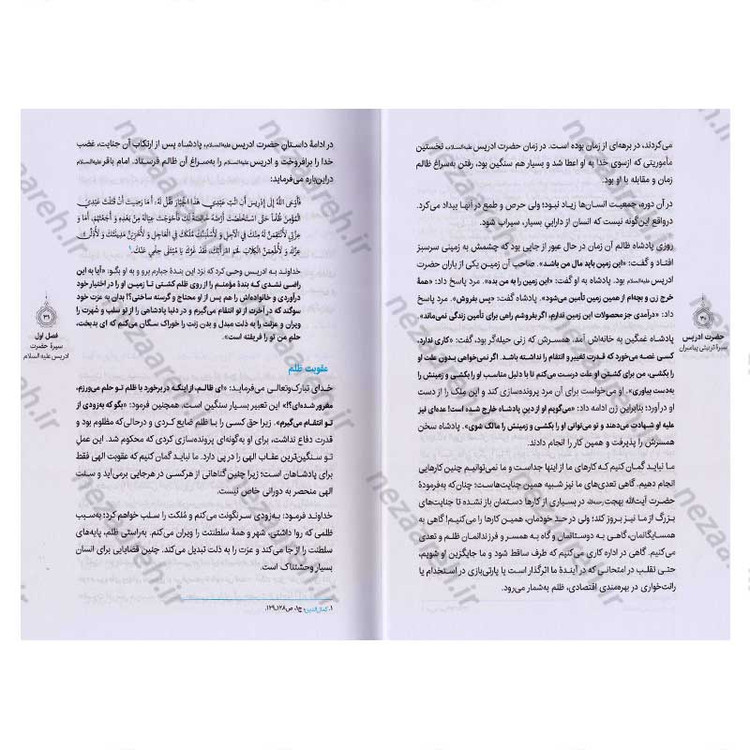 می‌کردند، در برهه‌ای از زمان بوده است. در زمان حضرت ادریس علیه‌السلام، نخستین
مأموریتی که ازسوی خدا به او اعطا شد و بسیار هم سنگین بود، رفتن به‌سراغ ظالم
زمان و مقابله با او بود.
در آن دوره، جمعیت انسان‌ها زیاد نبود؛ ولی حرص و طمع در آنها بیداد می‌کرد.
درواقع این‌گونه نیست که انسان از داراییِ بسیار، سیراب شود.
روزی پادشاه ظالم آن زمان در حال عبور از جایی بود که چشمش به زمینی سرسبز
افتاد و گفت: «این زمین باید مال من باشد». صاحب آن زمین یکی از یاران حضرت
ادریس علیه‌السلام بود. پادشاه به او گفت: «این زمین را به من بده». مرد پاسخ داد: «همۀ
خرج زن و بچه‌ام از همین زمین تأمین می‌شود». پادشاه گفت: «پس بفروش». مرد پاسخ
داد: «درآمدی جز محصولات این زمین ندارم، اگر بفروشم راهی برای تأمین زندگی نمی‌ماند»
پادشاه غمگین به خانه‌اش آمد. همسرش که زنی حیله‌گر بود، گفت: «کاری ندارد،
کسی غصه می‌خورد که قدرت تغییر و انتقام را نداشته باشد. اگر نمی‌خواهی بدون علت او
را بکشی، من برای کشتن او علت درست می‌کنم تا با دلیل مناسب او را بکشی و زمینش را
به‌دست بیاوری». او می‌خواست برای آن مرد پرونده‌سازی کند و این ملک را از دست
او درآورد؛ بنابراین زن ادامه داد: «می‌گویم او از دین پادشاه خارج شده است! عده‌ای نیز
علیه او شهادت می‌دهند و تو می‌توانی او را بکشی و زمینش را مالک شوی». پادشاه سخن
همسرش را پذیرفت و همین کار را انجام دادند.
ما نباید گمان کنیم که کارهای ما از اینها جداست و ما نمی‌توانیم چنین کارهایی
انجام دهیم. گاهی تعدی‌های ما نیز شبیه همین جنایت‌هاست؛ چنان‌که به‌فرمودۀ
حضرت آیت‌الله بهجت در بسیاری از کارها دستمان باز نشده تا جنایت‌های
بزرگ از ما نیز بروز کند؛ ولی در حد خودمان، همین کارها را می‌کنیم! گاهی به
همسایگانمان، گاهی به دوستانمان و گاه به همسر و فرزندانمان ظلم و تعدی
می‌کنیم. گاهی در اداره کاری می‌کنیم که طرف ساقط شود و ما جایگزین او شویم،
حتی تقلب در امتحانی که در آیندۀ ما اثرگذار است یا پارتی‌بازی در استخدام یا
رانت‌خواری در بهره‌مندی اقتصادی، ظلم به‌شمار می‌رود.
حضرت ادریس
سیرۀ تربیتی پیامبران
در ادامۀ داستانِ حضرت ادریس علیه‌السلام، پادشاه پس از ارتکاب آن جنایت، غضب
خدا را برافروخت و ادریس علیه‌السلام را به‌سراغ آن ظالم فرستاد. امام باقر علیه‌السلام
دراین‌باره می‌فرماید:
فَأَوْحَى اللَّهُ إِلَى إِدْرِيسَ أَنِ ائْتِ عَبْدِي هَذَا الْجَبَّارَ فَقُلْ لَهُ: أَمَا رَضِيتَ أَنْ قَتَلْتَ عَبْدِيَ
الْمُؤْمِنَ ظُلْماً حَتَّى اسْتَخْلَصْتَ أَرْضَهُ خَالِصَةً لَكَ فَأَحْوَجْتَ عِيَالَهُ مِنْ بَعْدِهِ وَ أَجَعْتَهُمْ، أَمَا وَ
عِزَّتِي لَأَنْتَقِمَنَّ لَهُ مِنْكَ فِي الْآجِلِ وَ لَأَسْلُبَنَّكَ مُلْكَكَ فِي الْعَاجِلِ وَ لَأُخَرِّبَنَّ مَدِينَتَكَ وَ لَأُذِلَّنَّ
عِزَّكَ وَ لَأُطْعِمَنَّ الْكِلَابَ لَحْمَ امْرَأَتِكَ، فَقَدْ غَرَّكَ يَا مُبْتَلَى حِلْمِي عَنْكَ.۱
خداوند به ادریس وحی کرد که نزد این بندۀ جبارم برو و به او بگو: «آیا به این
راضی نشدی که بندۀ مؤمنم را از روی ظلم کشتی تا زمین او را در اختیار خود
درآوردی و خانواده‌اش را هم پس از او محتاج و گرسنه ساختی؟! بدان به عزت خود
سوگند که در آخرت از تو انتقام می‌گیرم و در دنیا پادشاهی را از تو سلب و شهرت را
ویران و عزتت را به ذلت مبدل و بدن زنت را خوراک سگان می‌کنم که ای بدبخت،
حلم من تو را فریفته است».
عقوبت ظلم
خدای تبارک‌وتعالی می‌فرماید: «ای ظالم، از اینکه در برخورد با ظلم تو حلم می‌ورزم،
مغرور شده‌ای؟!» این تعبیر بسیار سنگین است. همچنین فرمود: «بگو که به‌زودی از
تو انتقام می‌گیرم». زیرا حق کسی را با ظلم ضایع کردی و درحالی‌که مظلوم بود و
قدرت دفاع نداشت، برای او به‌گونه‌ای پرونده‌سازی کردی که محکوم شد. این عملِ
تو سنگین‌ترین عقاب الهی را درپی دارد. ما نباید گمان کنیم که عقوبت الهی فقط
برای پادشاهان است؛ زیرا چنین گناهانی از هرکسی در هرجایی برمی‌آید و سنت
الهی منحصر به دورانی خاص نیست.
خداوند فرمود: به‌زودی سرنگونت می‌کنم و مُلکت را سلب خواهم کرد؛ به‌سبب
ظلمی که روا داشتی، شهر و همۀ سلطنتت را ویران می‌کنم. به‌راستی ظلم، پایه‌های
سلطنت را از جا می‌کند و عزت را به ذلت تبدیل می‌کند. چنین قضایایی برای انسان
بسیار وحشتناک است.
۱. کمال‌الدین، ج۱، ص۱۲۸ـ۱۲۹.
۳۹
فصل اول
سیرۀ حضرت
ادریس علیه السلام
nezaareh.ir